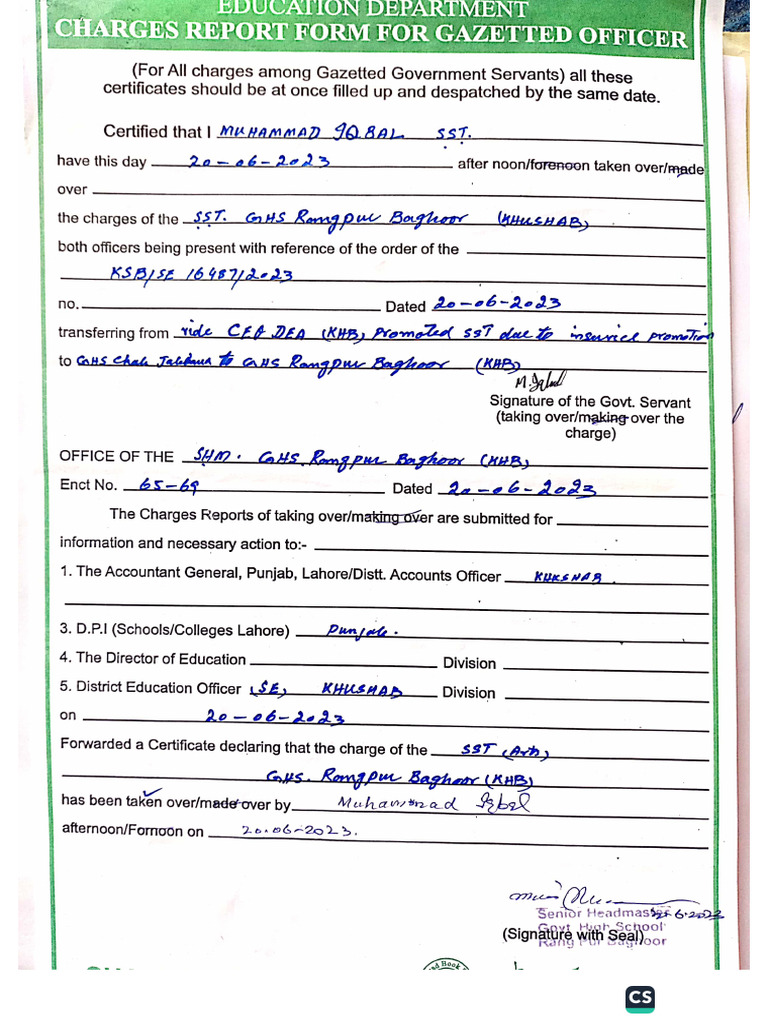 EDUCATION DEPARTMENT
CHARGES REPORT FORM FOR GAZETTED OFFICER
(For All charges among Gazetted Government Servants) all these
certificates should be at once filled up and despatched by the same date.
Certified that I MUHAMMAD IQBAL SST.
have this day 20-06-2023 after noon/forenoon taken over/made
over
the charges of the SST. GHS Rangpur Baghoor (KHUSHAB)
both officers being present with reference of the order of the
KSB/SE 16487/2023
no. Dated 20-06-2023
transferring from vide CEO DEA (KHB) promoted SST due to inservice promotion
to GHS Chak to GHS Rangpur Baghoor (KHB)
M. Iqbal
Signature of the Govt. Servant
(taking over/making over the
charge)
OFFICE OF THE SHM. GHS. Rangpur Baghoor (KHB)
Enct No. 65-69 Dated 20-06-2023
The Charges Reports of taking over/making over are submitted for
information and necessary action to:-
1. The Accountant General, Punjab, Lahore/Distt. Accounts Officer KHUSHAB.
3. D.P.I (Schools/Colleges Lahore) Punjab.
4. The Director of Education Division
5. District Education Officer (SE) KHUSHAB Division
on 20-06-2023
Forwarded a Certificate declaring that the charge of the SST (Arts)
GHS. Rangpur Baghoor (KHB)
has been taken over/made over by Muhammad Iqbal
afternoon/Fornoon on 20.06-2023.
Senior Headmaster 6.2023
Govt. High School
(Signature with Seal)
Rang Pur Baghoor
Book
CS